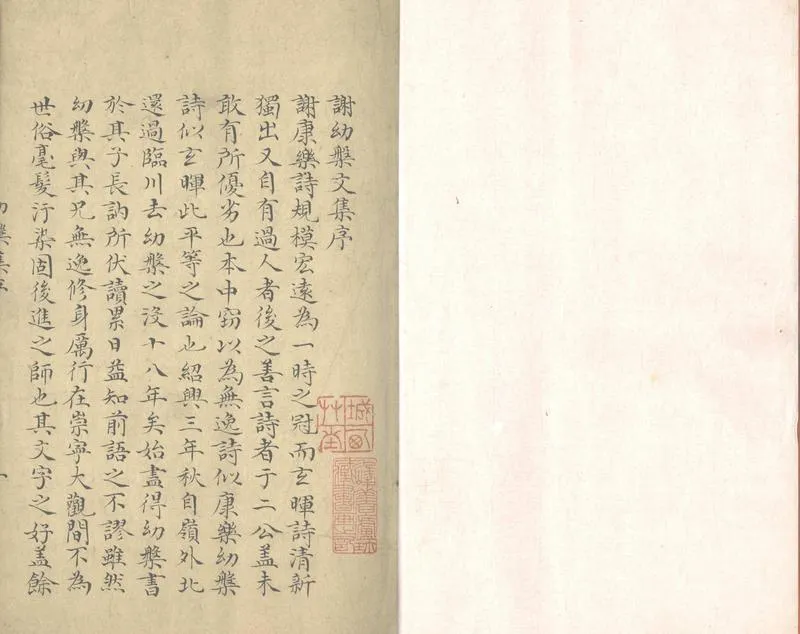 謝幼槃文集序
謝康樂詩規模宏遠為一時之冠而玄暉詩清新
獨出又自有過人者後之善言詩者于二公盖未
敢有所優劣也本中窃以為無逸詩似康樂幼槃
詩似玄暉此平等之論也紹興三年秋自嶺外北
還過臨川去幼槃之沒十八年矣始盡得幼槃書
於其子長訥所伏讀累日益知前語之不謬雖然
幼槃與其兄無逸修身厲行在崇寧大觀間不為
世俗毫髮汙染固後進之師也其文字之好盖餘